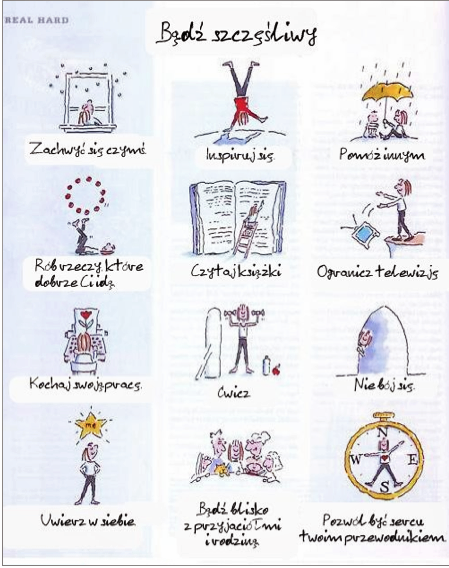 REAL HARD
Bądź szczęśliwy
Zachwyć się czymś
Inspiruj się
Pomóż innym
Rób rzeczy, które
dobrze Ci idą
Czytaj książki
Ogranicz telewizję
Kochaj swoją pracę
Ćwicz
Nie bój się
me
Uwierz w siebie
Bądź blisko
z przyjaciółmi
i rodziną
N
W E
S
Pozwól być sercu
twoim przewodnikiem